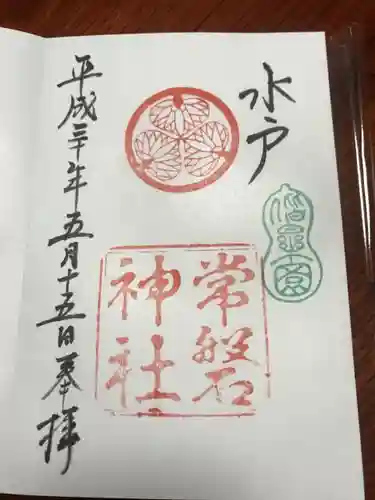 水戸
常磐
神社
平成三十年五月十五日奉拝